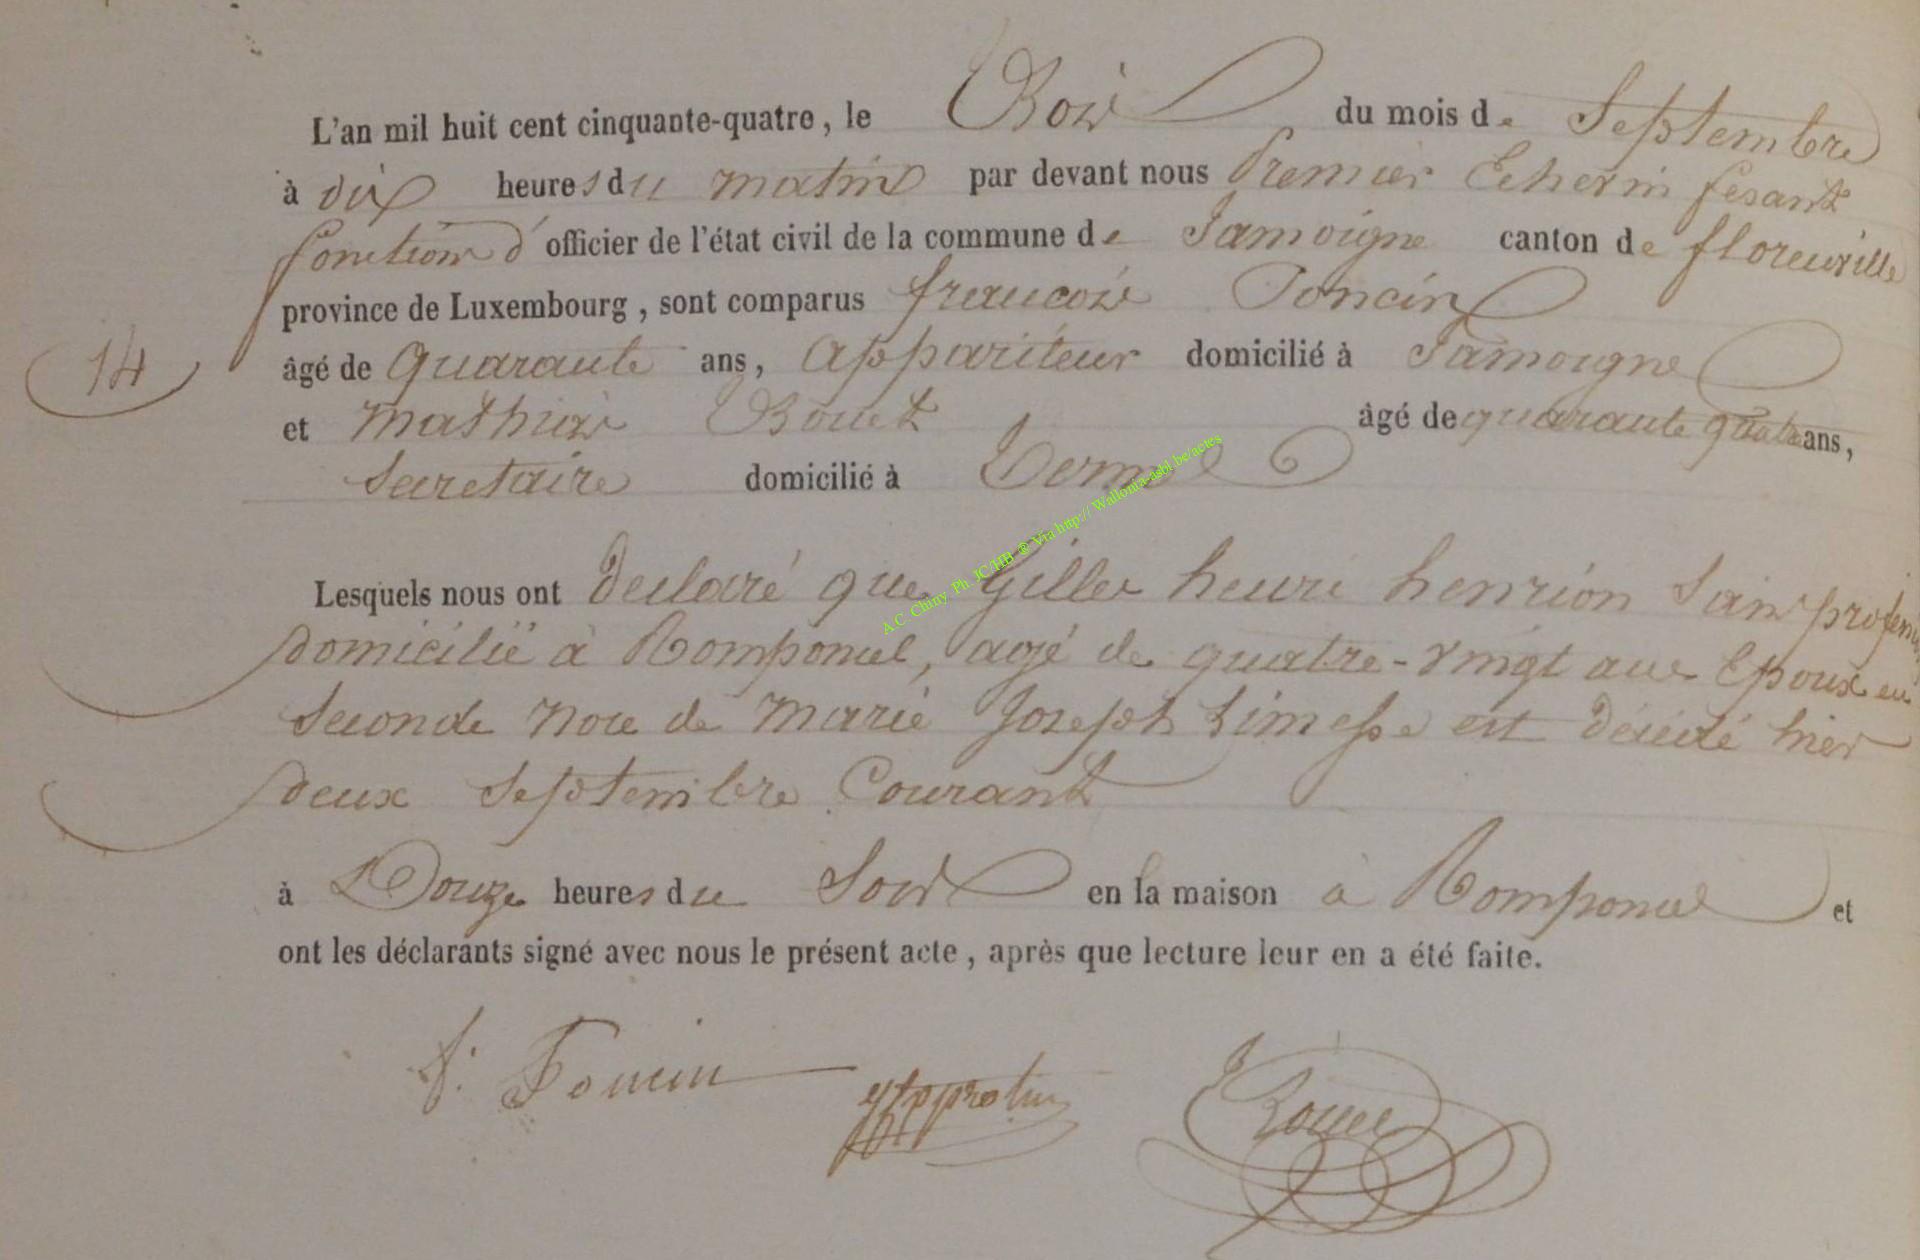 L'an mil huit cent cinquante-quatre, le Trois du mois de Septembre
à dix heures du matin par devant nous Premier Echevin fesant
fonction d'officier de l'état civil de la commune de Jamoigne canton de florenville
province de Luxembourg, sont comparus francois Poncin
14
âgé de Quarante ans, appariteur domicilié à Jamoigne
et mathieu Rouet âgé de quarante quatre ans,
Secretaire domicilié à Termes
Lesquels nous ont declaré que Gilles henri henrion Sans profession
domicilié à Romponcel, agé de quatre-vingt ans Epoux en
Seconde Noce de Marie Joseph est décédé hier
deux Septembre Courant
à Douze heures du Soir en la maison à Romponcel et
ont les déclarants signé avec nous le présent acte, après que lecture leur en a été faite.
f. Poncin Rouet
A.C. Chiny Ph. JC/HB ® Via http://Wallonia-asbl.be/actes